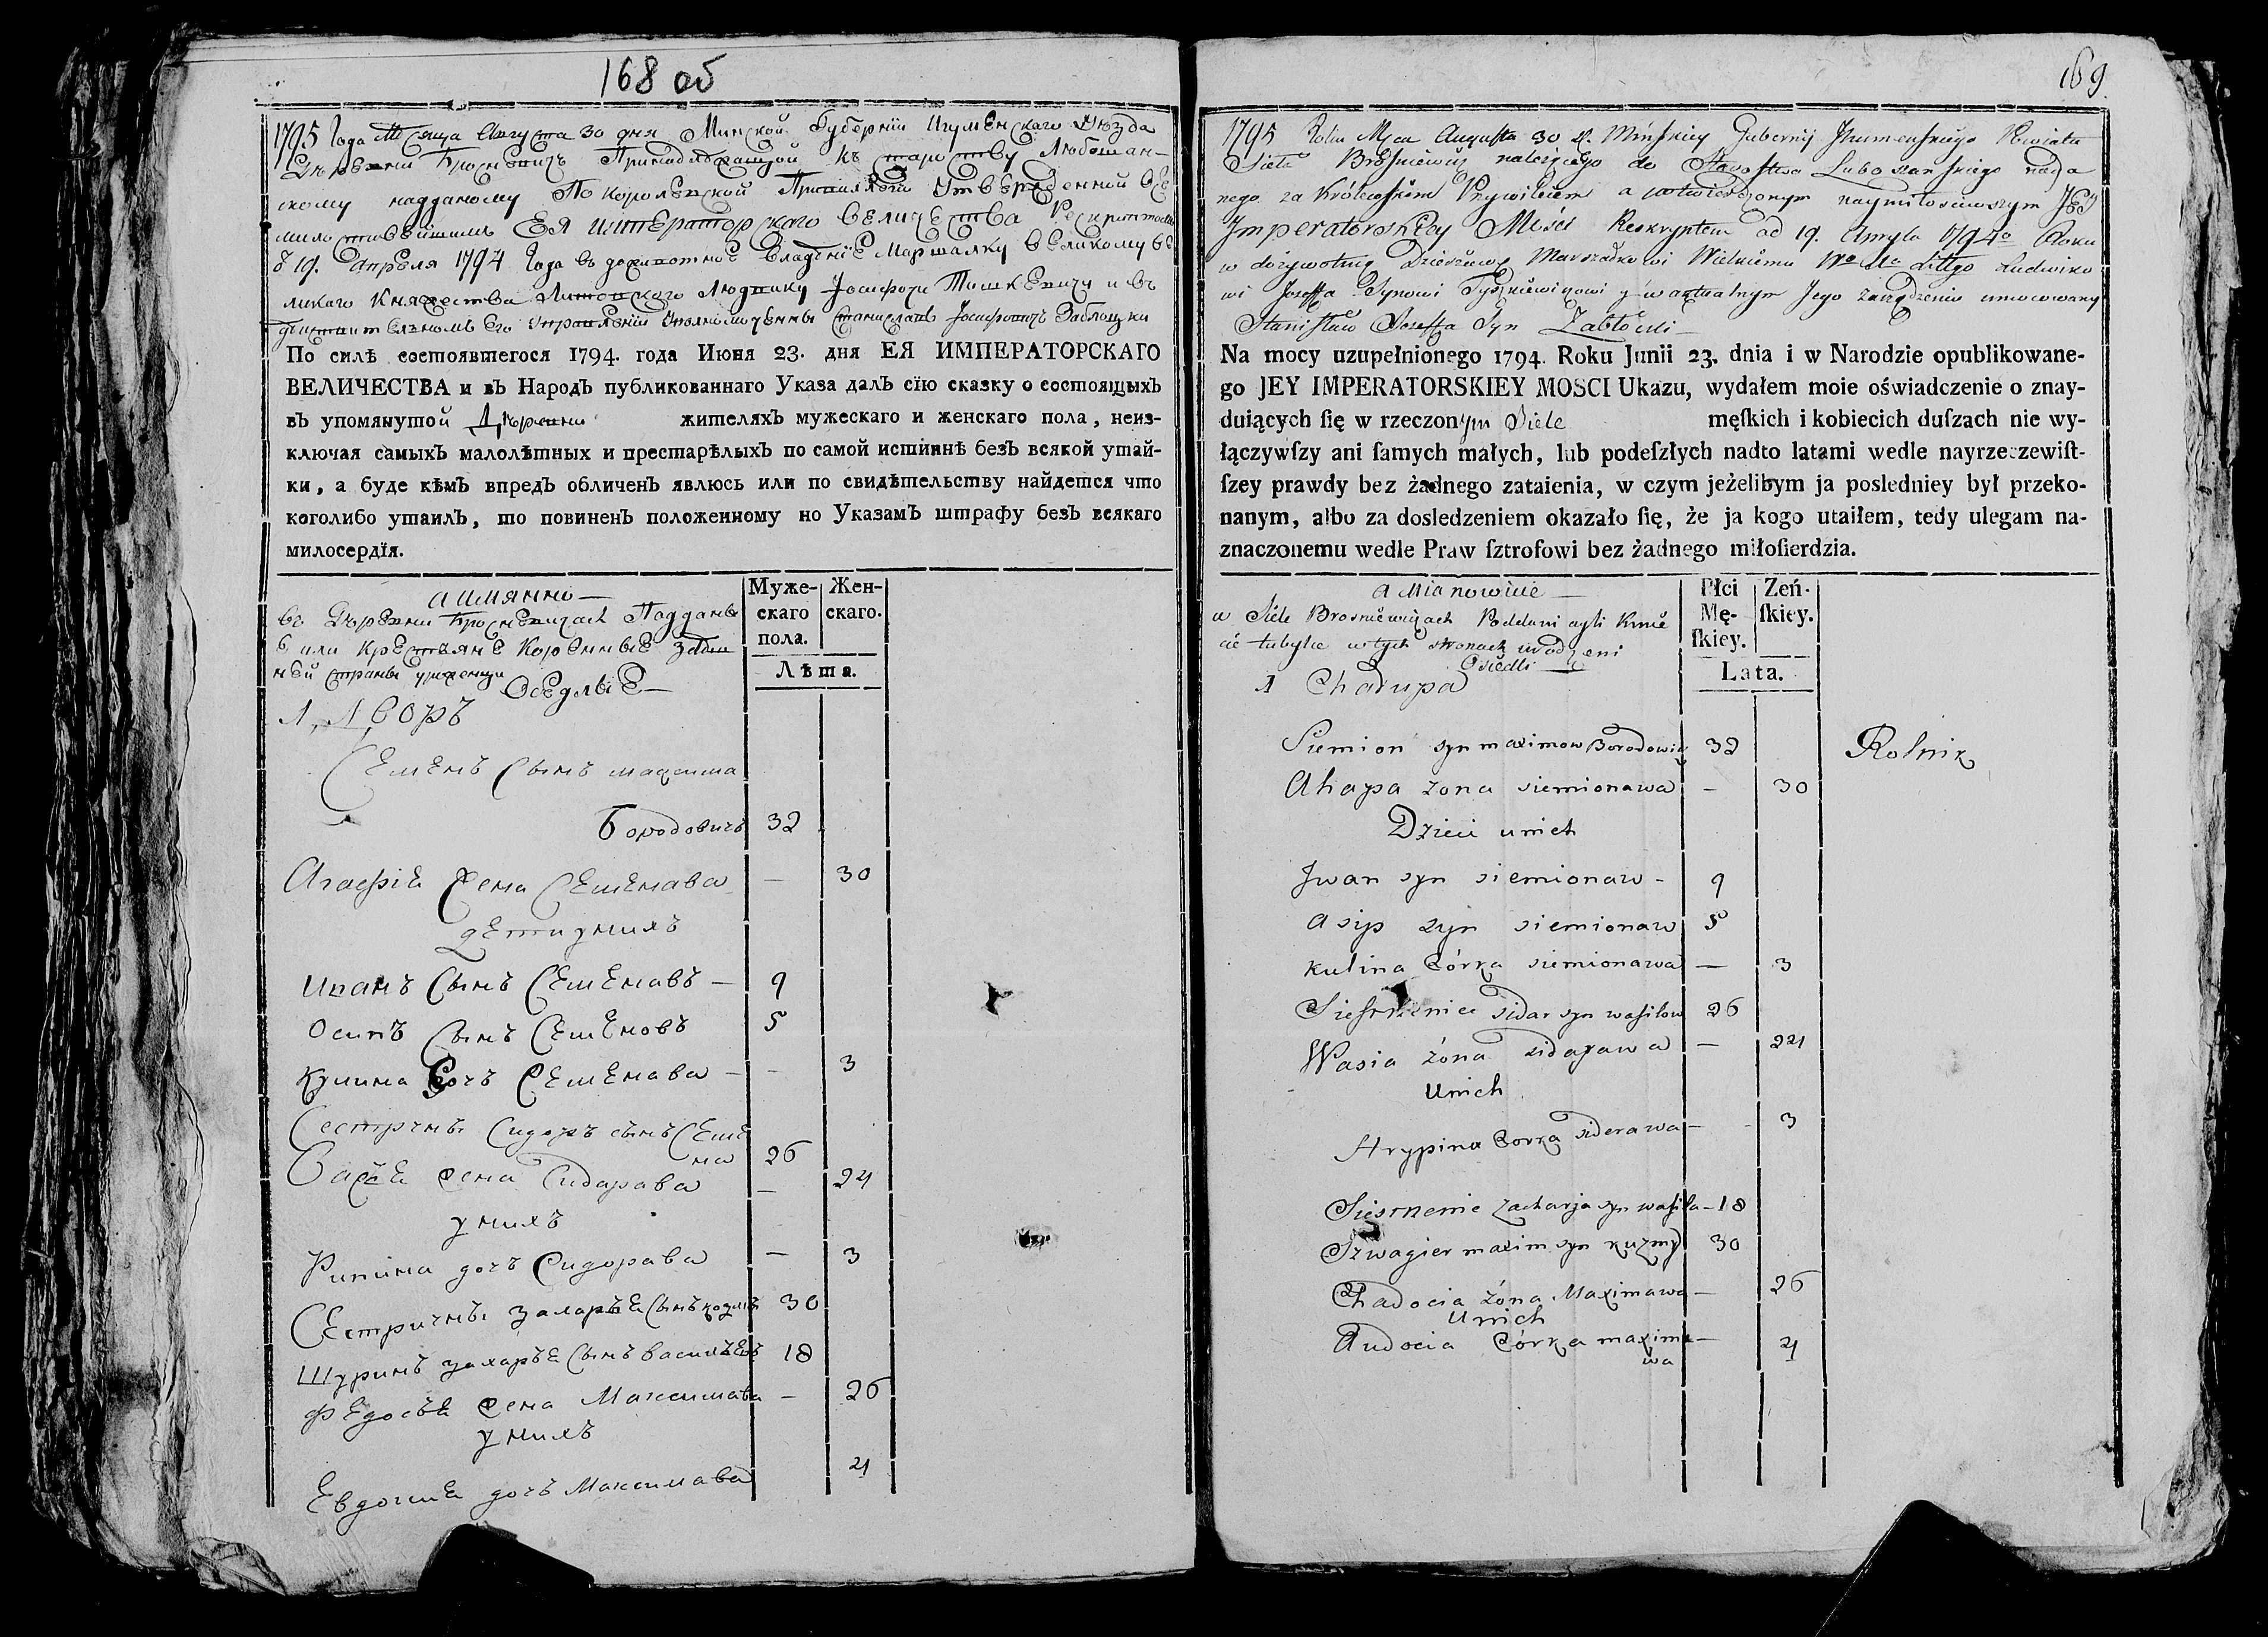 168 об
1795 Года Месяца Августа 30 дня Минской Губернии Игуменскаго Уезда
Деревни Бросневичъ Принадлежащой къ староству Любошан-
скому надданому По Королевской Привилегии Утвержденной все
милостивейшимъ ЕЯ императорскаго величества Рескриптомъ
19. Апреля 1794 Года въ доживотное владение Маршалку великому ве
ликаго Княжества Литовского Людвику Иосифову Тишкевичу и въ
действительномъ Его управлении уполномоченны Станиславъ Иосифовичъ Заблоцки
По силѣ состоявшегося 1794. года Июня 23. дня ЕЯ ИМПЕРАТОРСКАГО
ВЕЛИЧЕСТВА и вЪ НародЪ публикованнаго Указа далЪ сїю сказку о состоящыхЪ
вЪ упомянутой Деревни жителяхЪ мужескаго и женскаго пола, неиз-
ключая самыхЪ малолѣтных и престарѣлыхЪ по самой истиннѣ безЪ всякой утай-
ки, а буде кѣмЪ впредЪ обличенЪ явлюсь или по свидѣтельству найдется что
коголибо утаилЪ, то повиненЪ положенному по УказамЪ штрафу безЪ всякаго
милосердїя.
а имянно —
въ Деревни Бросневичахъ Подданы
е или Крестьяне Коренные здеш
ней страны урожденци
Оседлые —
Муже-
скаго
пола.
Жен-
скаго.
Лѣта.
1 Дворъ
Семенъ Сынъ максима
Бородовичъ 32
Агафiя Жена Семенава — 30
дети унихъ
Иванъ Сынъ Семенавъ — 9
Осипъ Сынъ Семеновъ 5
Кулина дочъ Семенава — - 3
Сестрины Сидоръ сынъ Семе
на 26
Васья жена Сидарава — 24
унихъ
Рипина дочъ Сидорава — 3
Сестрины захарья Сынъ козмы 30
Шуринъ захарья Сынъ василъевъ 18
Федосья жена Максимава — 26
унихъ
Евдокия дочъ Максимава 4
169
1795 Roku Mca Augusta 30 d. Mińskiey Gubernij Jhumenskiego Powiatu
Sioła Brośniewicz należącego do Starostwa Luboszańskiego nada
nego za Królewskim Przywilejem a potwierdzonym naymiłościwszym JEY
Imperatorskiey Mości Reskryptem od 19. Apryla 1794o Roku
w dożywotnią Dzierżawę Marszałkowi Wielkiemu Wo Xa Littgo Ludwiko
wi Joseffa Synowi Tyszkiewiczowi y w aktualnym Jego zarządzeniu umocowany
Stanisław Joseffa Syn Zabłocki —
Na mocy uzupełnionego 1794. Roku Junii 23. dnia i w Narodzie opublikowane-
go JEY IMPERATORSKIEY MOSCI Ukazu, wydałem moie oświadczenie o znay-
duiących ſię w rzeczonym Siele męſkich i kobiecich duſzach nie wy-
łączywſzy ani ſamych małych, lub podeſzłych nadto latami wedle nayrzeczewiſt-
ſzey prawdy bez żadnego zataienia, w czym jeżelibym ja posledniey był przeko-
nanym, albo za dosledzeniem okazało ſię, że ja kogo utaiłem, tedy ulegam na-
znaczonemu wedle Praw ſztrofowi bez żadnego miłoſierdzia.
a Mianowicie —
w Siele Brosniewiczach Poddani czyli Kmie
cie tubylce w tych stronach urodzeni
Osiedli —
Płci
Mę-
ſkiey.
Zeń-
ſkiey.
Lata.
1 Chałupa
Siemion syn maximow Borodowicz 32 Rolnik
Ahapa zona siemionawa — 30
Dzieci unich
Jwan syn siemionaw - 9
asip syn siemionaw 5
Kulina Córka siemionawa — 3
Siestrzenice Sidar syn wasilow 26
Wasia żóna sidarawa — 24
Unich
Hrypina Corka siderawa — - 3
Siestrzenie zacharja syn wasila — 18
Szwagier maxim syn kuzmy 30
Chadocia żóna Maximawa — 26
Unich
Audocia Córka maxima —
wa 4